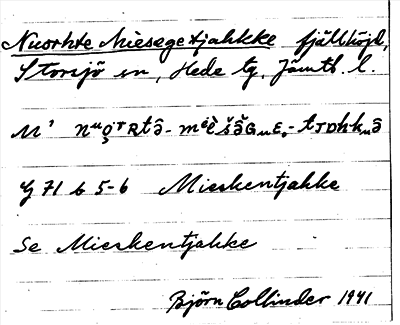 Nuorhte Miesegetjahkke fjällhöjd,
Storsjö sn, Hede tg, Jämtl. l.
M¹
G 71 b 5-6 Mieskentjahke
Se Mieskentjahke
Björn Collinder 1941